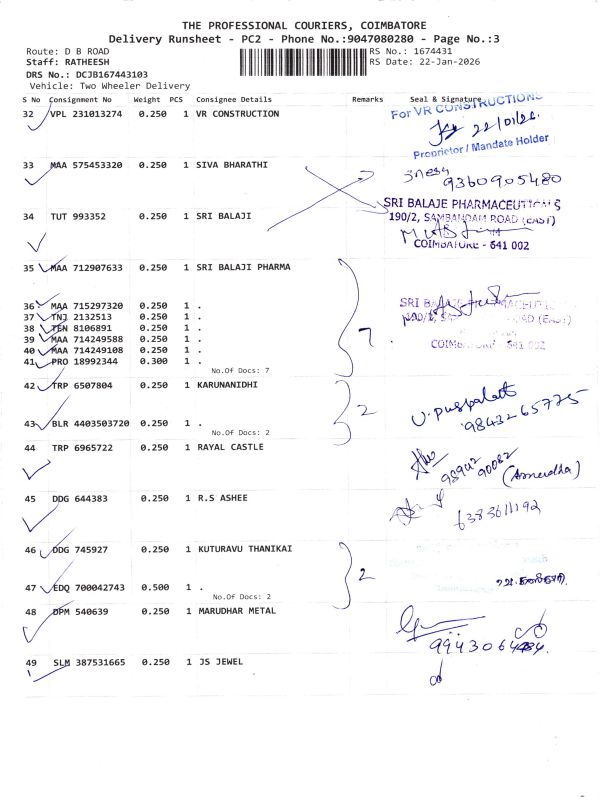 THE PROFESSIONAL COURIERS, COIMBATORE
Delivery Runsheet - PC2 - Phone No.:9047080280 - Page No.:3
Route: D B ROAD RS No.: 1674431
Staff: RATHEESH RS Date: 22-Jan-2026
DRS No.: DCJB167443103
Vehicle: Two Wheeler Delivery
S No Consignment No Weight PCS Consignee Details Remarks Seal & Signature
For VR CONSTRUCTIONS
32 VPL 231013274 0.250 1 VR CONSTRUCTION
22/01/26
Proprietor / Mandate Holder
33 MAA 575453320 0.250 1 SIVA BHARATHI
9360905480
SRI BALAJE PHARMACEUTICALS
34 TUT 993352 0.250 1 SRI BALAJI 190/2, SAMBANDAM ROAD (EAST)
COIMBATORE - 641 002
35 MAA 712907633 0.250 1 SRI BALAJI PHARMA
36 MAA 715297320 0.250 1 .
37 TNJ 2132513 0.250 1 .
38 TEN 8106891 0.250 1 .
39 MAA 714249588 0.250 1 .
40 MAA 714249108 0.250 1 .
41 PRO 18992344 0.300 1 .
7
No.Of Docs: 7
42 TRP 6507804 0.250 1 KARUNANIDHI
2
43 BLR 4403503720 0.250 1 .
No.Of Docs: 2
44 TRP 6965722 0.250 1 RAYAL CASTLE
45 DDG 644383 0.250 1 R.S ASHEE
6383611192
46 DDG 745927 0.250 1 KUTURAVU THANIKAI
2
47 EDQ 700042743 0.500 1 .
No.Of Docs: 2
48 DPM 540639 0.250 1 MARUDHAR METAL
49 SLM 387531665 0.250 1 JS JEWEL